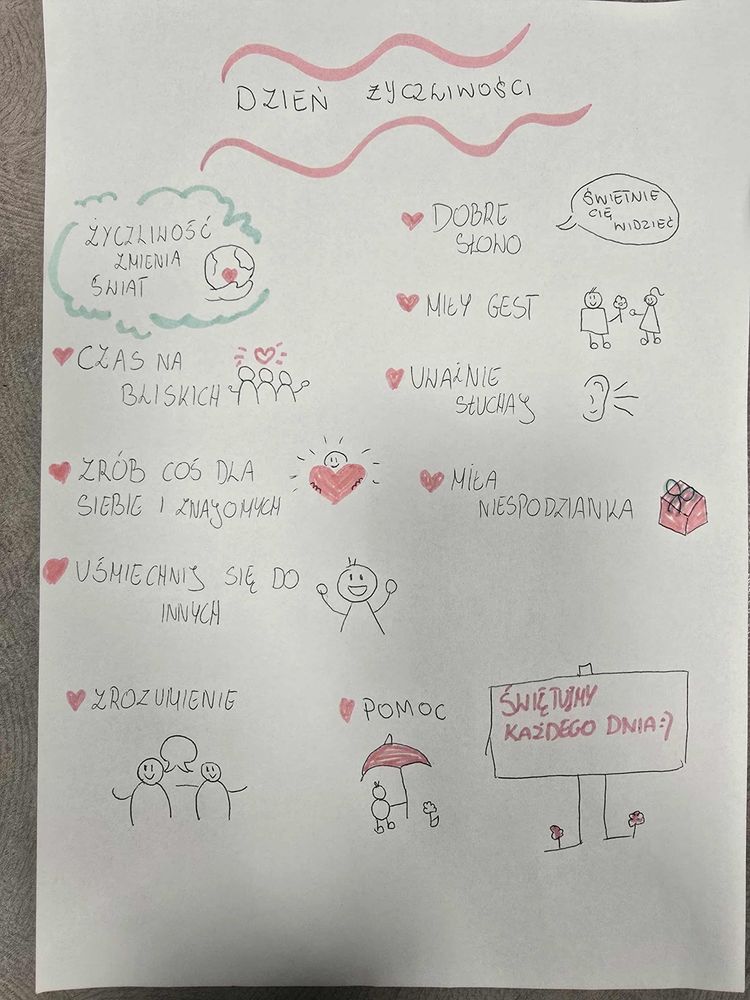 DZIEŃ ŻYCZLIWOŚCI
ŻYCZLIWOŚĆ
ZMIENIA
ŚWIAT
CZAS NA
BLISKICH
ZRÓB COŚ DLA
SIEBIE I ZNAJOMYCH
UŚMIECHNIJ SIĘ DO
INNYCH
DOBRE
SŁOWO
ŚWIETNIE
CIĘ
WIDZIEĆ
MIŁY GEST
UWAŻNIE
SŁUCHAJ
MIŁA
NIESPODZIANKA
ZROZUMIENIE
POMOC
ŚWIĘTUJMY
KAŻDEGO DNIA:)